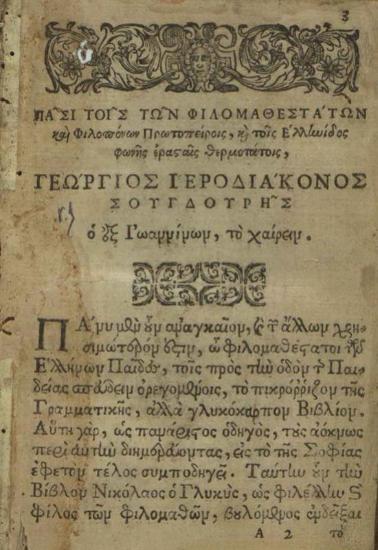 3
ΠΑ͂ΣΙ ΤΟΙ͂Σ ΤΩ͂Ν ΦΙΛΟΜΑΘΕΣΤΆΤΩΝ
καὶ Φιλοπόνων Πρωτοπείροις, κỳ τοῖς Ἑλληνίδος
φωνῆς ἐρασταῖς θερμοτάτοις,
ΓΕΏΡΓΙΟΣ ἹΕΡΟΔΙΆΚΟΝΟΣ
ΣΟΥΓΔΟΥΡΗ͂Σ
ὁ ἐξ Ἰωαννίνων, τὸ χαίρειν.
ΠΆνυ μὲν οὖν ἀναγκαῖον, ἢ τἄλλων χρη-
σιμώτερόν ἐστιν, ὦ φιλομαθέστατοι τῶν
Ἑλλήνων Παῖδες, τοῖς πρὸς τὴν ὁδὸν τ͂ Παι-
δείας σπεύδειν ὀρεγομένοις, τὸ πικρόῤῥιζον τῆς
Γραμματικῆς, ἀλλὰ γλυκόκαρπον Βιβλίον.
Αὕτη γὰρ, ὡς πανάριστος ὁδηγὸς, τοὺς ἀόκνως
περὶ αὐτὴν διημερεύοντας, εἰς τὸ τῆς Σοφίας
ἐφετὸν τέλος συμποδηγεῖ. Ταύτην οὖν τὴν
Βίβλον Νικόλαος ὁ Γλυκὺς, ὡς φιλέλλην κỳ
φίλος τῶν φιλομαθῶν, βουλόμενος ἐνδεῖξαι
A 2 τὸ